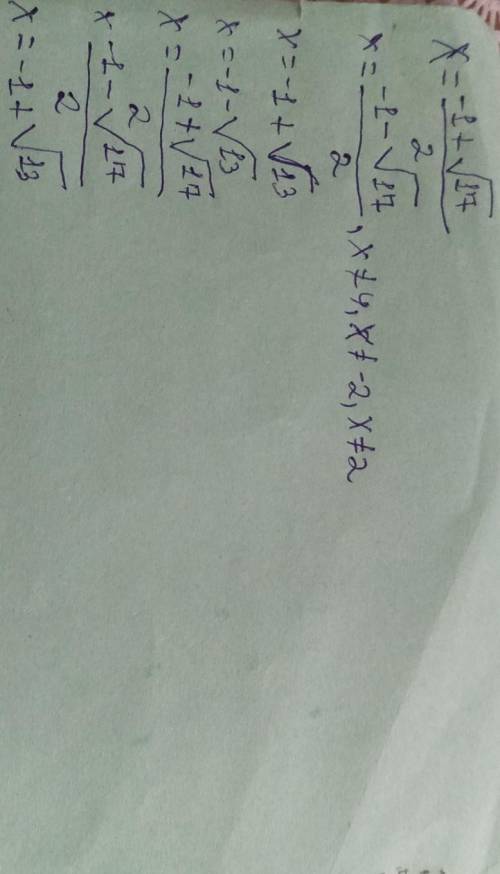 x = (-1+√17)/2
x = (-1-√17)/2, x≠4, x≠-2, x≠2
x = -1+√13
x = -1-√13
x = (-1+√17)/2
x (-1-√17)/2
x = -1+√13